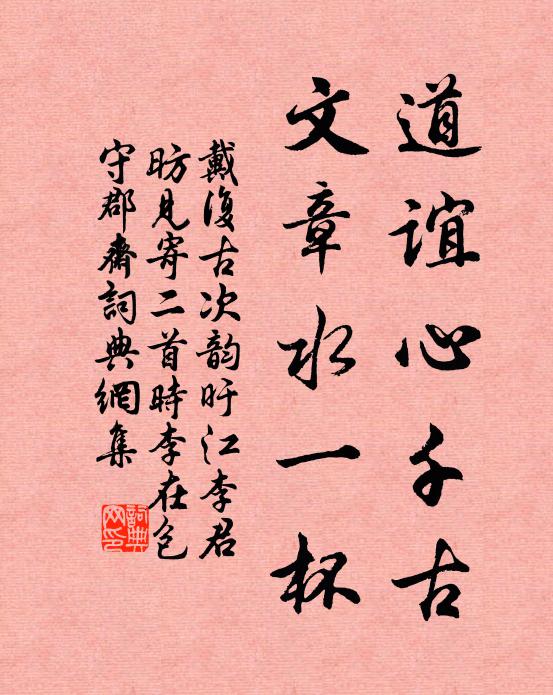 道誼心千古
文章水一杯
戴復古次韵旴江李君
昉見寄二首時李在包
守郡齋詞典網集
詞典
网印